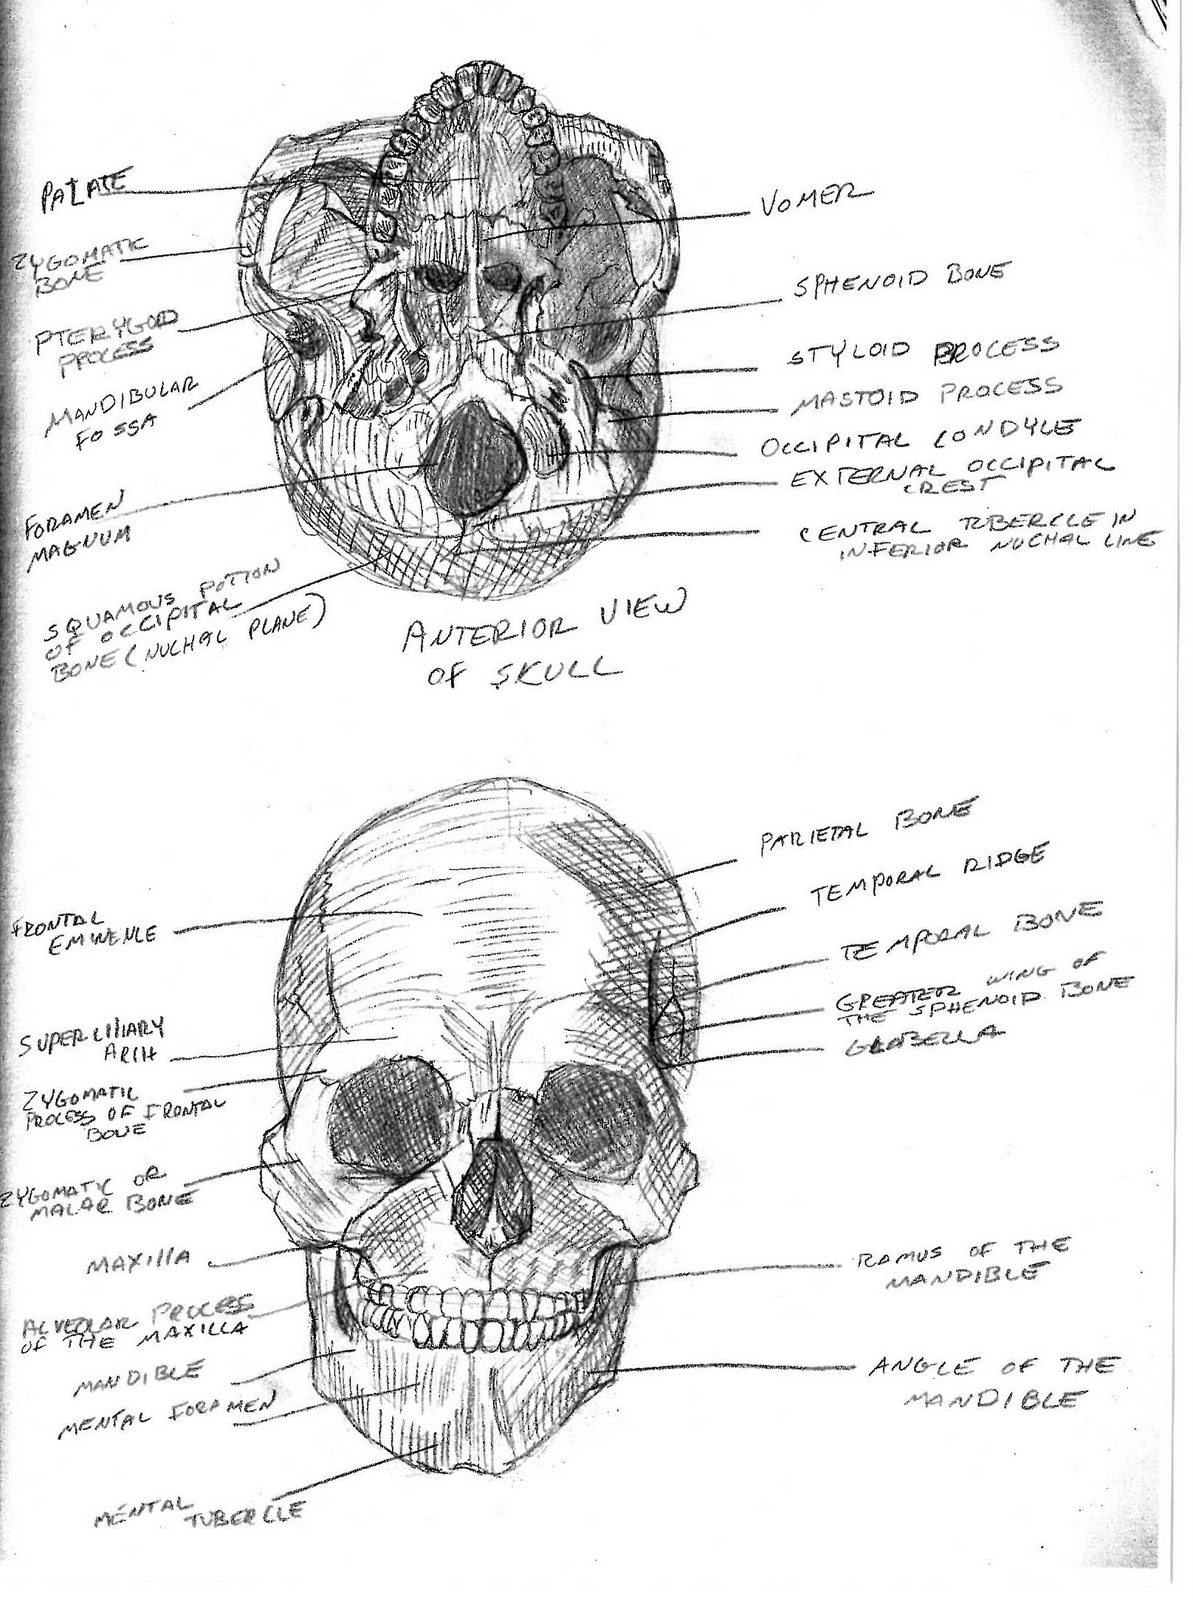 PALATE
ZYGOMATIC
BONE
PTERYGOID
PROCESS
MANDIBULAR
FOSSA
FORAMEN
MAGNUM
SQUAMOUS POTION
OF OCCIPITAL
BONE (NUCHAL PLANE)
VOMER
SPHENOID BONE
STYLOID PROCESS
MASTOID PROCESS
OCCIPITAL CONDYLE
EXTERNAL OCCIPITAL
CREST
CENTRAL TUBERCLE IN
INFERIOR NUCHAL LINE
ANTERIOR VIEW
OF SKULL
FRONTAL
EMINENCE
SUPERCILIARY
ARCH
ZYGOMATIC
PROCESS OF FRONTAL
BONE
ZYGOMATIC OR
MALAR BONE
MAXILLA
ALVEOLAR PROCESS
OF THE MAXILLA
MANDIBLE
MENTAL FORAMEN
MENTAL
TUBERCLE
PARIETAL BONE
TEMPORAL RIDGE
TEMPORAL BONE
GREATER WING OF
THE SPHENOID BONE
GLABELLA
RAMUS OF THE
MANDIBLE
ANGLE OF THE
MANDIBLE